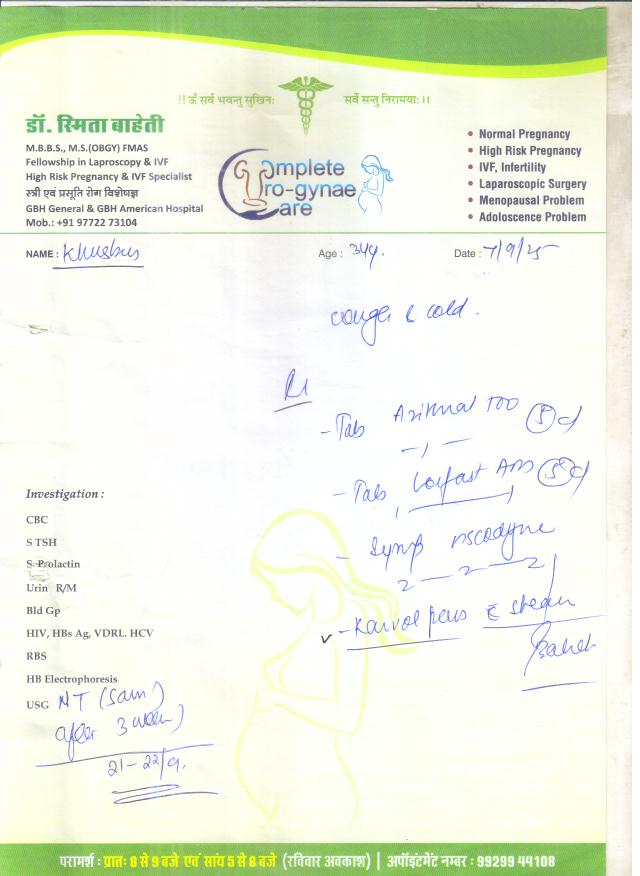 !! ॐ सर्वे भवन्तु सुखिनः सर्वे सन्तु निरामयाः ।।
डॉ. स्मिता बाहेती
M.B.B.S., M.S.(OBGY) FMAS
Fellowship in Laproscopy & IVF
High Risk Pregnancy & IVF Specialist
स्त्री एवं प्रसूति रोग विशेषज्ञ
GBH General & GBH American Hospital
Mob.: +91 97722 73104
Complete
Uro-gynae
Care
• Normal Pregnancy
• High Risk Pregnancy
• IVF, Infertility
• Laparoscopic Surgery
• Menopausal Problem
• Adoloscence Problem
NAME : Khusbu Age : 34y. Date : 7/9/25
cough & cold.
Rx
- Tab 5 d
- Tab 5 d
- Syrup
2 — 2 — 2
✓ - Karvol c steam
Investigation :
CBC
S TSH
S. Prolactin
Urin R/M
Bld Gp
HIV, HBs Ag, VDRL. HCV
RBS
HB Electrophoresis
USG NT (Scan)
after 3 week)
21-22/9.
परामर्श : प्रातः 8 से 9 बजे एवं सांय 5 से 8 बजे (रविवार अवकाश) | अपॉइंटमेंट नम्बर : 99299 44108